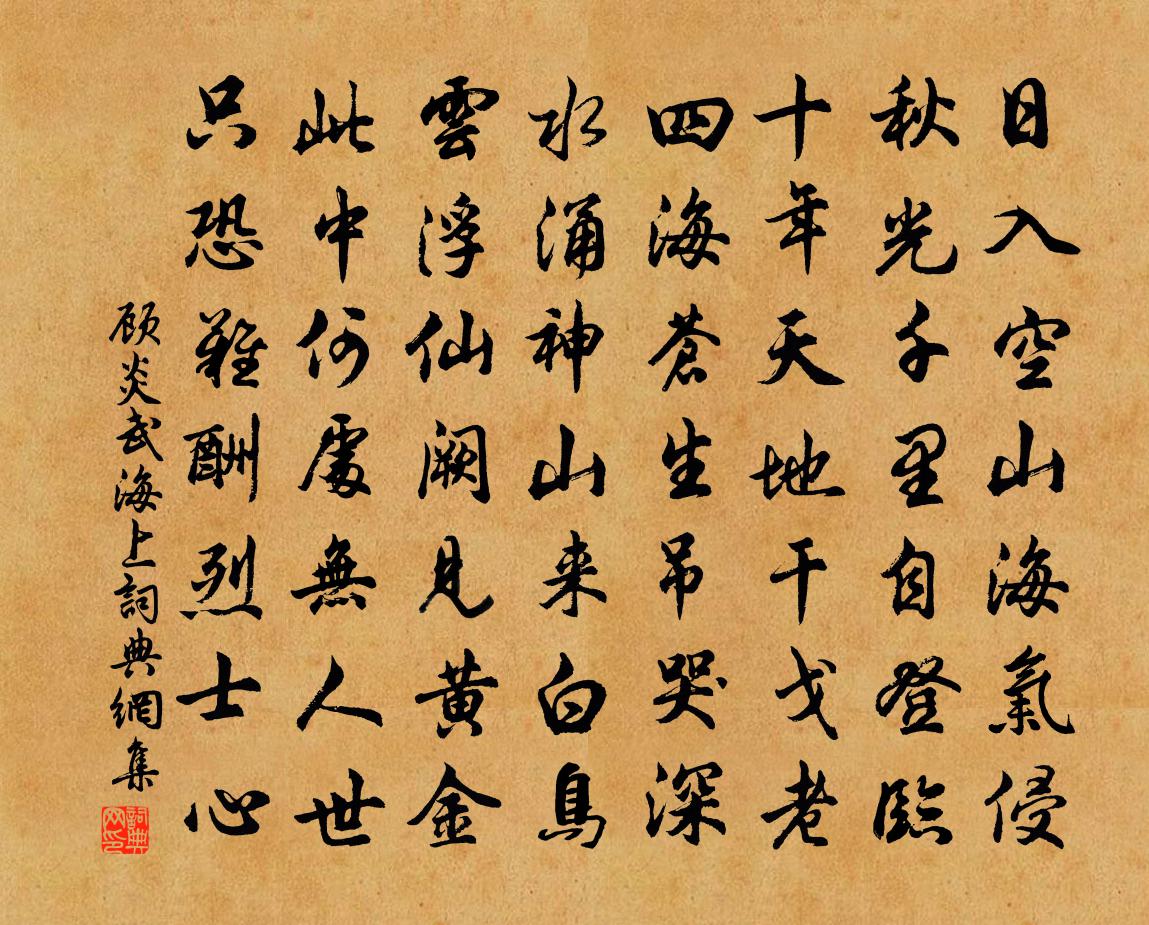 日入空山海氣侵
秋光千里自登臨
十年天地干戈老
四海蒼生吊哭深
水涌神山来白鳥
雲浮仙闕見黃金
此中何處無人世
只恐難酬烈士心
顾炎武海上詞典網集
詞典網印